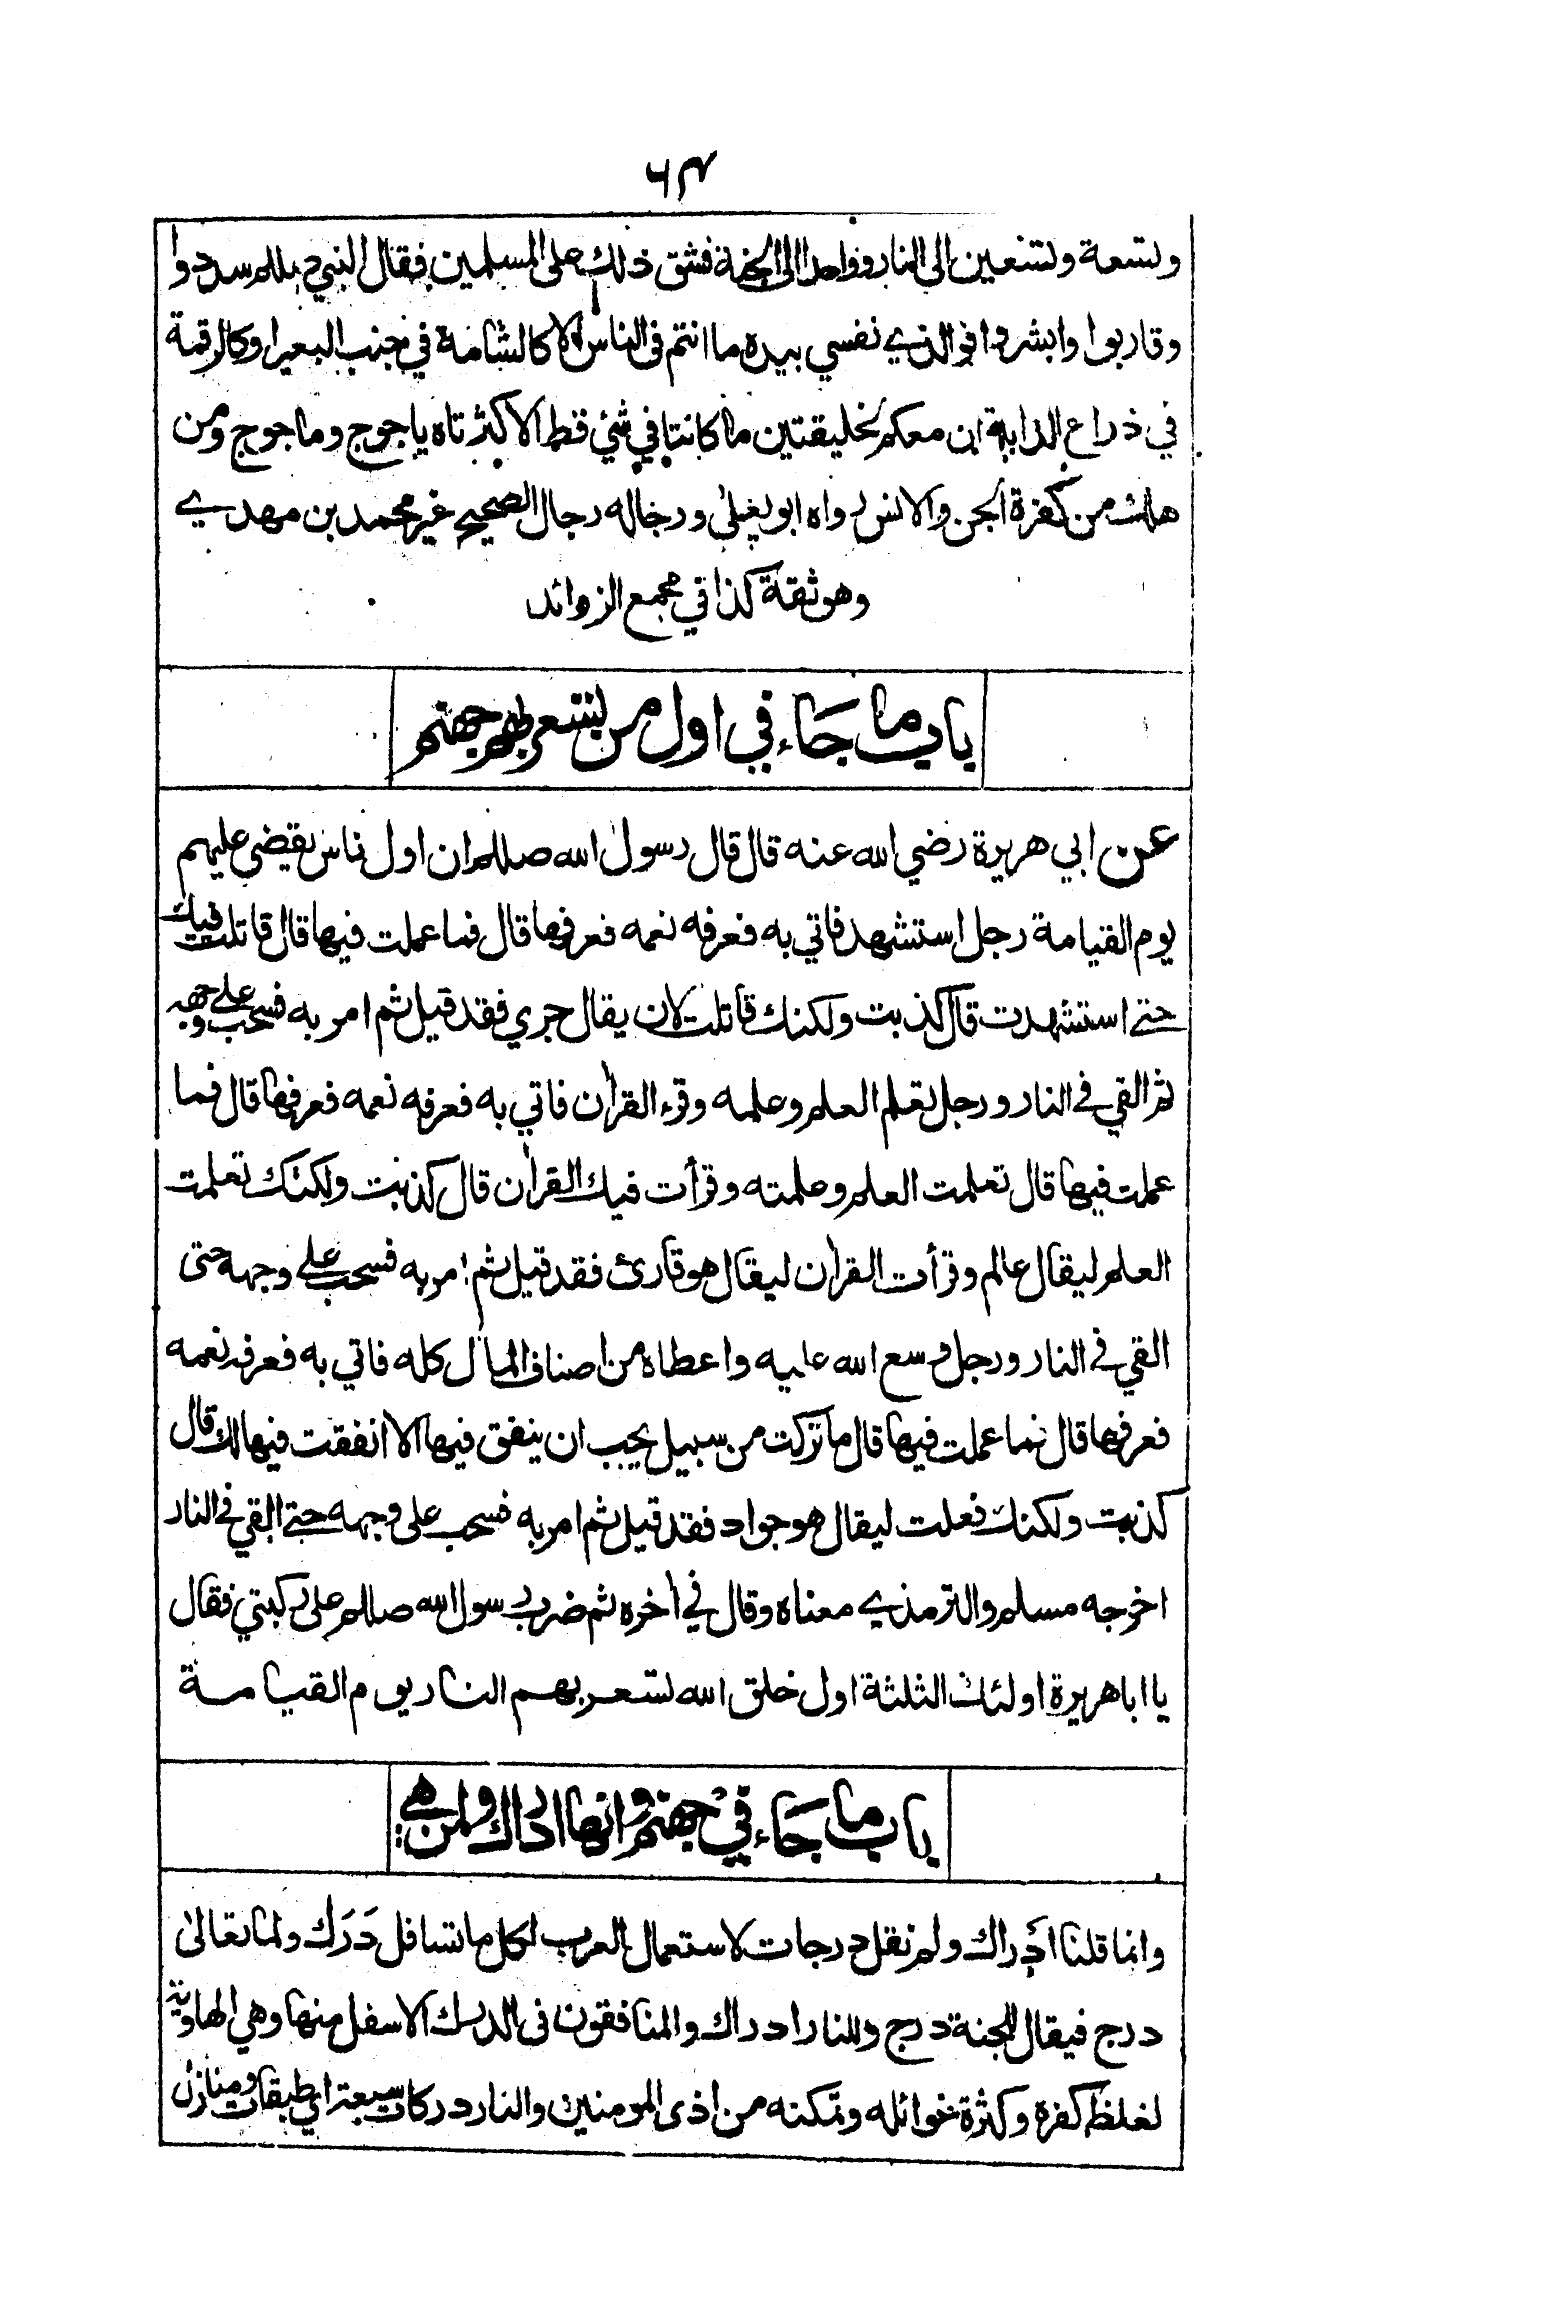 ٦٣
وتسعة وتسعين الى النار وواحدا الى الجنة فشق ذلك على المسلمين فقال النبي صللم سددوا
وقاربوا وابشروا فوالذي نفسي بيده ما انتم فى الناس الا كالشامة في جنب البعير او كالرقمة
في ذراع الدابة ان معكم لخليقتين ما كانتا في شئ قط الا كثرتاه ياجوج وماجوج ومن
هلك من كفرة الجن والانس رواه ابو يعلى ورجاله رجال الصحيح غير محمد بن مهدي
وهو ثقة كذا في مجمع الزوائد
باب ما جاء في اول من تسعر بهم جهنم
عن ابي هريرة رضي الله عنه قال قال رسول الله صللم ان اول ناس يقضى عليهم
يوم القيامة رجل استشهد فاتي به فعرفه نعمه فعرفها قال فما عملت فيها قال قاتلت فيك
حتى استشهدت قال كذبت ولكنك قاتلت لان يقال جري فقد قيل ثم امر به فسحب على وجهه
ثم القي في النار ورجل تعلم العلم وعلمه وقرء القران فاتي به فعرفه نعمه فعرفها قال فما
عملت فيها قال تعلمت العلم وعلمته وقرأت فيك القران قال كذبت ولكنك تعلمت
العلم ليقال عالم وقرأت القران ليقال هو قارئ فقد قيل ثم امر به فسحب على وجهه حتى
القي في النار ورجل وسع الله عليه واعطاه من اصناف المال كله فاتي به فعرفه نعمه
فعرفها قال فما عملت فيها قال ما تركت من سبيل يحب ان ينفق فيها الا انفقت فيها لك قال
كذبت ولكنك فعلت ليقال هو جواد فقد قيل ثم امر به فسحب على وجهه حتى القي في النار
اخرجه مسلم والترمذي معناه وقال في أخره ثم ضرب رسول الله صللم على ركبتي فقال
يا ابا هريرة اولئك الثلثة اول خلق الله تسعر بهم النار يوم القيامة
باب ما جاء في جهنم وانها ادراك ولمن هي
وانما قلنا ادراك ولم نقل درجات لاستعمال العرب لكل ما تسافل دَرَك ولما تعالى
درج فيقال للجنة درج وللنار ادراك والمنافقون فى الدرك الاسفل منها وهي الهاوية
لغلظ كفره وكثرة غوائله وتمكنه من اذى المومنين والنار دركات سبعة اي طبقات ومنازل